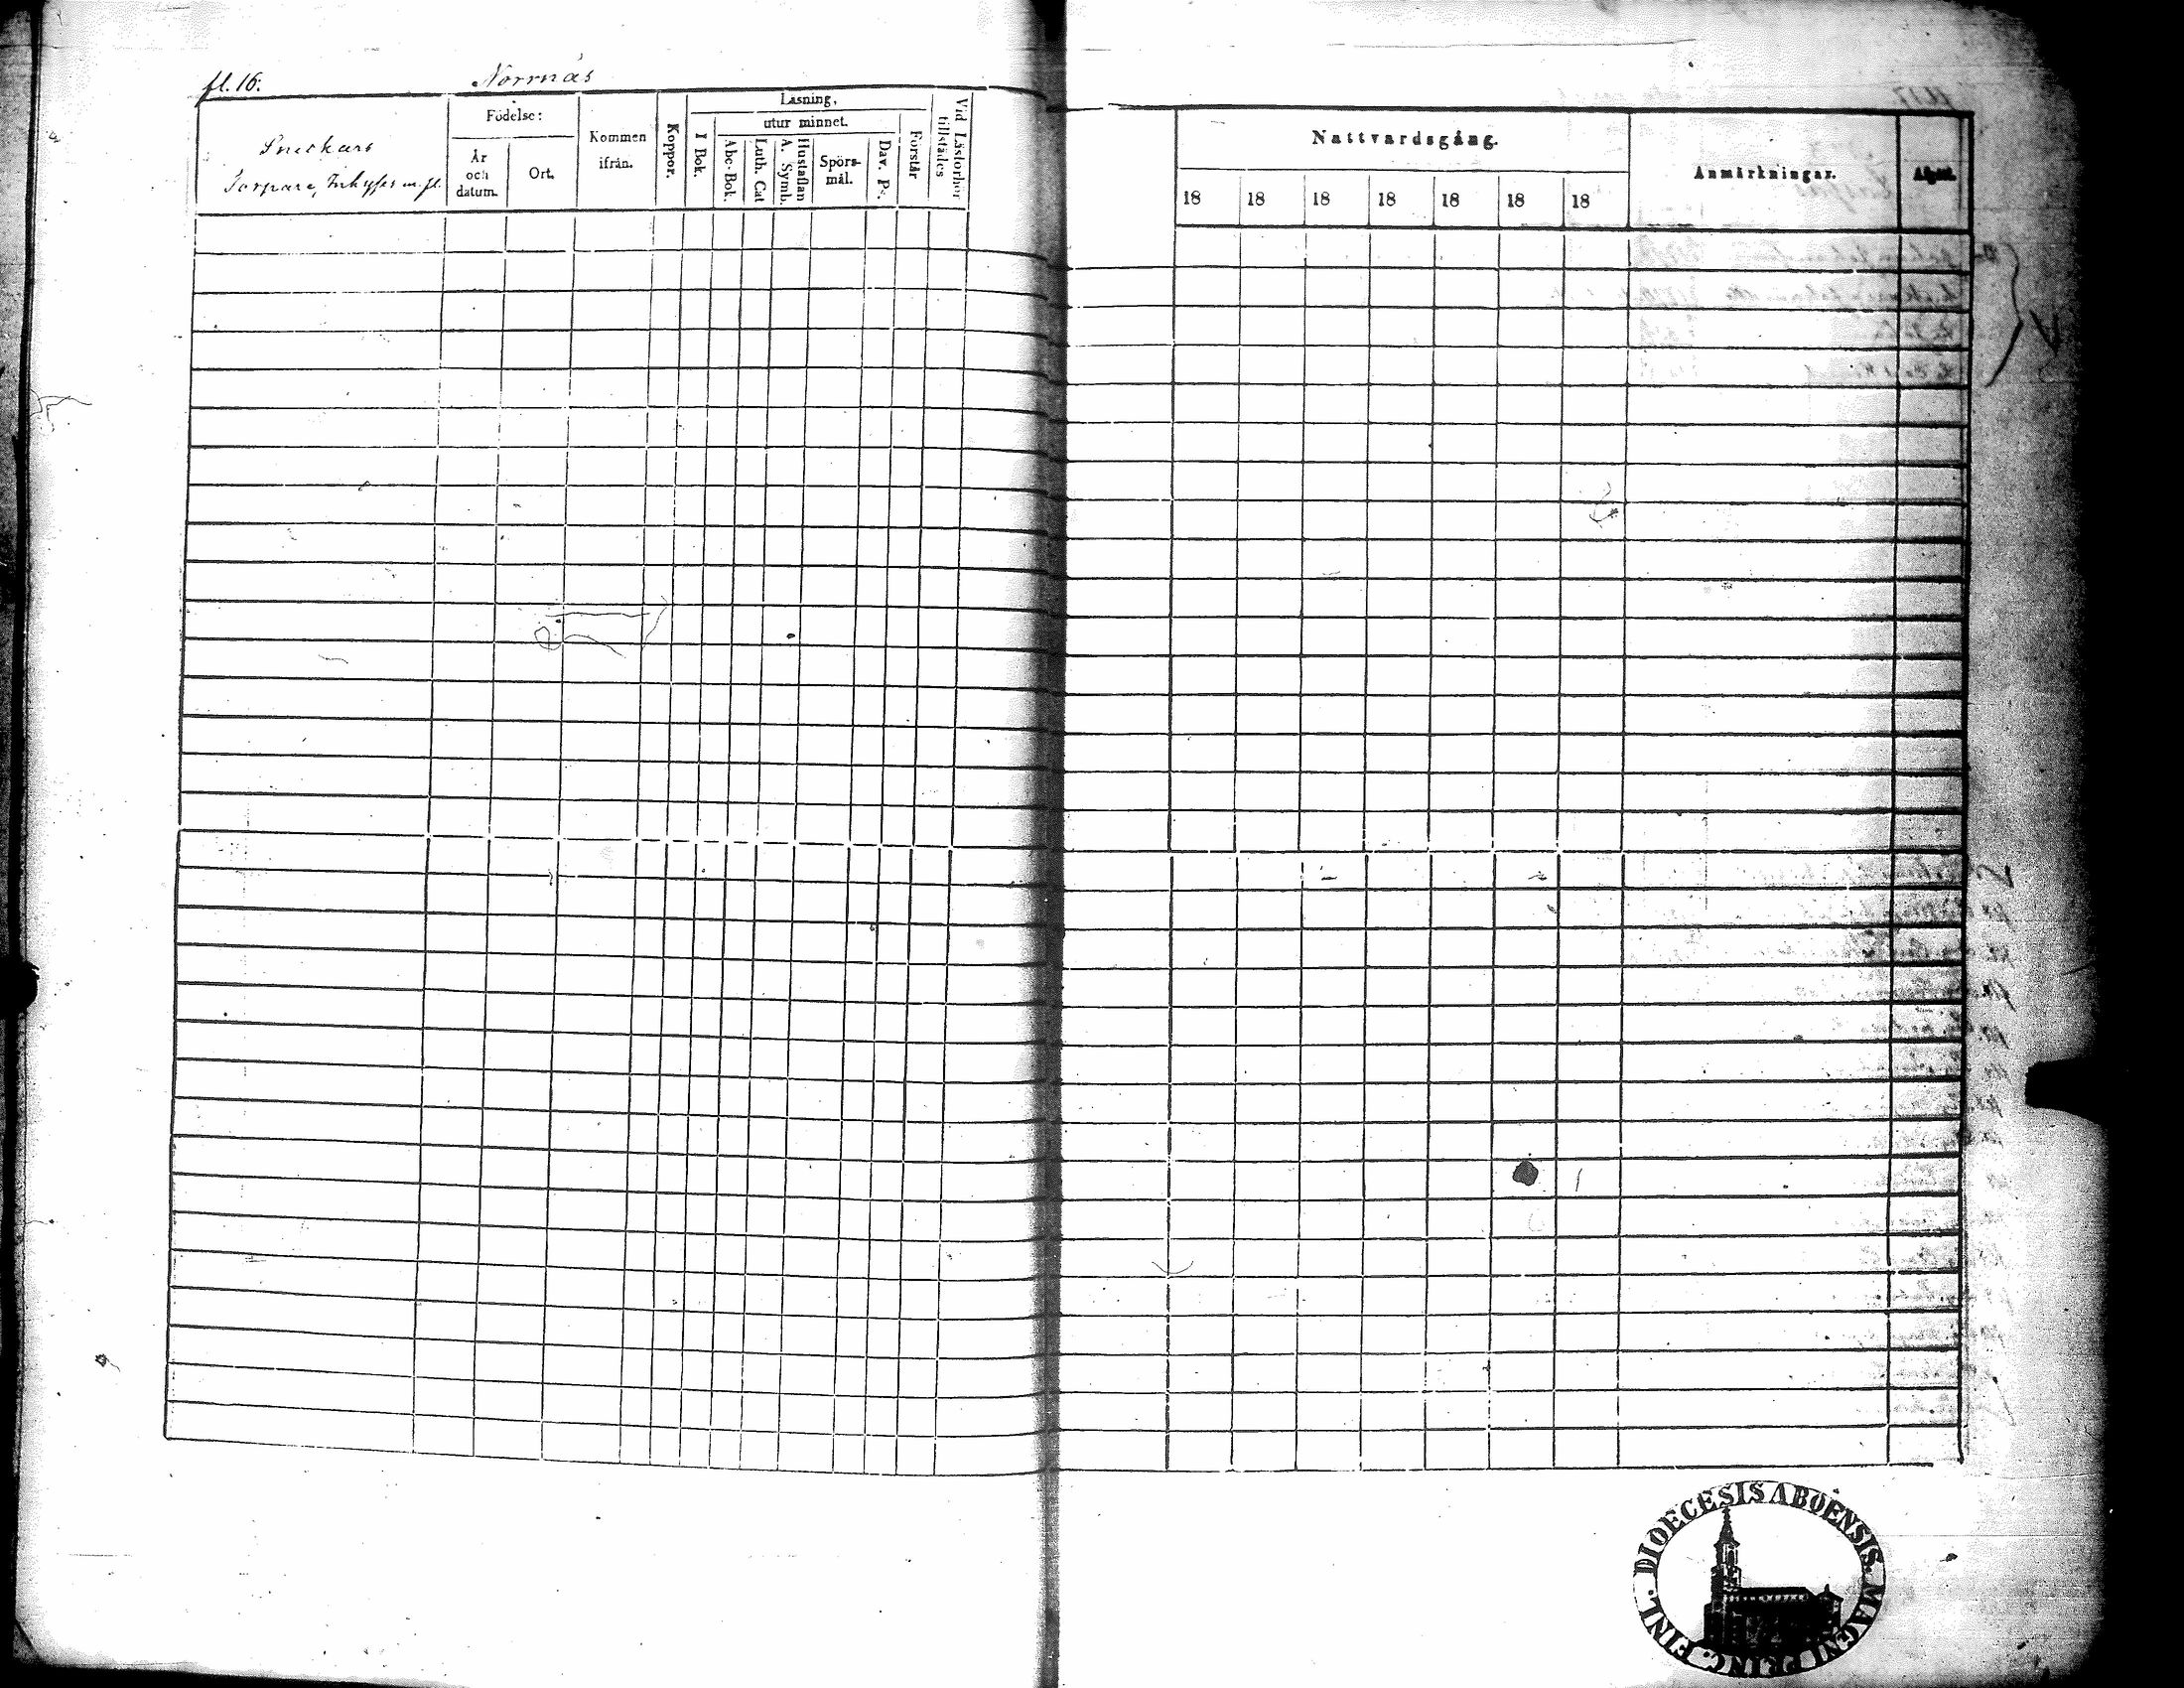 fl. 16.
Norrnäs
Sneckars
Torpare, Inhyses m. fl.
Födelse:
År
och
datum.
Ort.
Kommen
ifrån.
Koppor.
Läsning,
I Bok.
utur minnet.
Abc-Bok.
Luth. Cat
A. Symb.
Hustaflan
Spörs-
mål.
Dav. Ps.
Förstår
Vid Läsförhör
tillstädes
Nattvardsgång.
18 18 18 18 18 18 18
Anmärkningar.
DIOECESIS ABOENSIS. MAGNI PRINC. FINL.